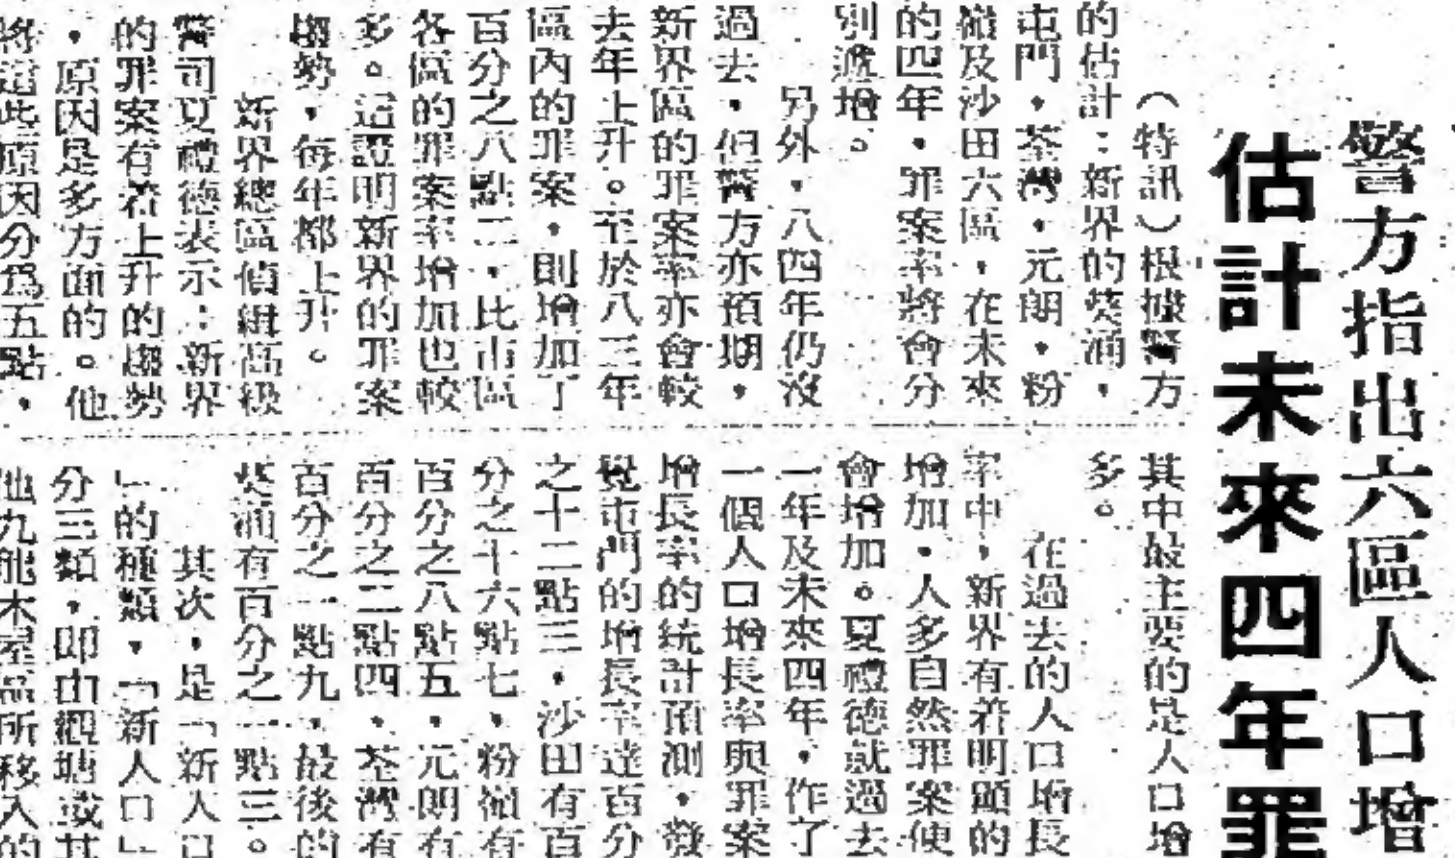 警方指出六區人口增
估計未來四年罪
（特訊）根據警方
的估計：新界的葵涌，
屯門，荃灣，元朗，粉
嶺及沙田六區，在未來
的四年，罪案率將會分
別遞增。
另外，八四年仍沒
過去，但警方亦預期，
新界區的罪案率亦會較
去年上升。至於八三年
區內的罪案，則增加了
百分之八點二，比市區
各區的罪案率增加也較
多。這證明新界的罪案
趨勢，每年都上升。
新界總區偵緝高級
警司夏禮德表示：新界
的罪案有着上升的趨勢
，原因是多方面的。他
將這些原因分爲五點，
其中最主要的是人口增
多。
在過去的人口增長
率中，新界有着明顯的
增加，人多自然罪案便
會增加。夏禮德就過去
一年及未來四年，作了
一個人口增長率與罪案
增長率的統計預測，發
覺屯門的增長率達百分
之十二點三，沙田有百
分之十六點七，粉嶺有
百分之八點五，元朗有
百分之二點四，荃灣有
百分之一點九，最後的
葵涌有百分之一點三。
其次，是「新人口
」的種類，「新人口」
分三類，即由觀塘或其
他九龍木屋區所移入的